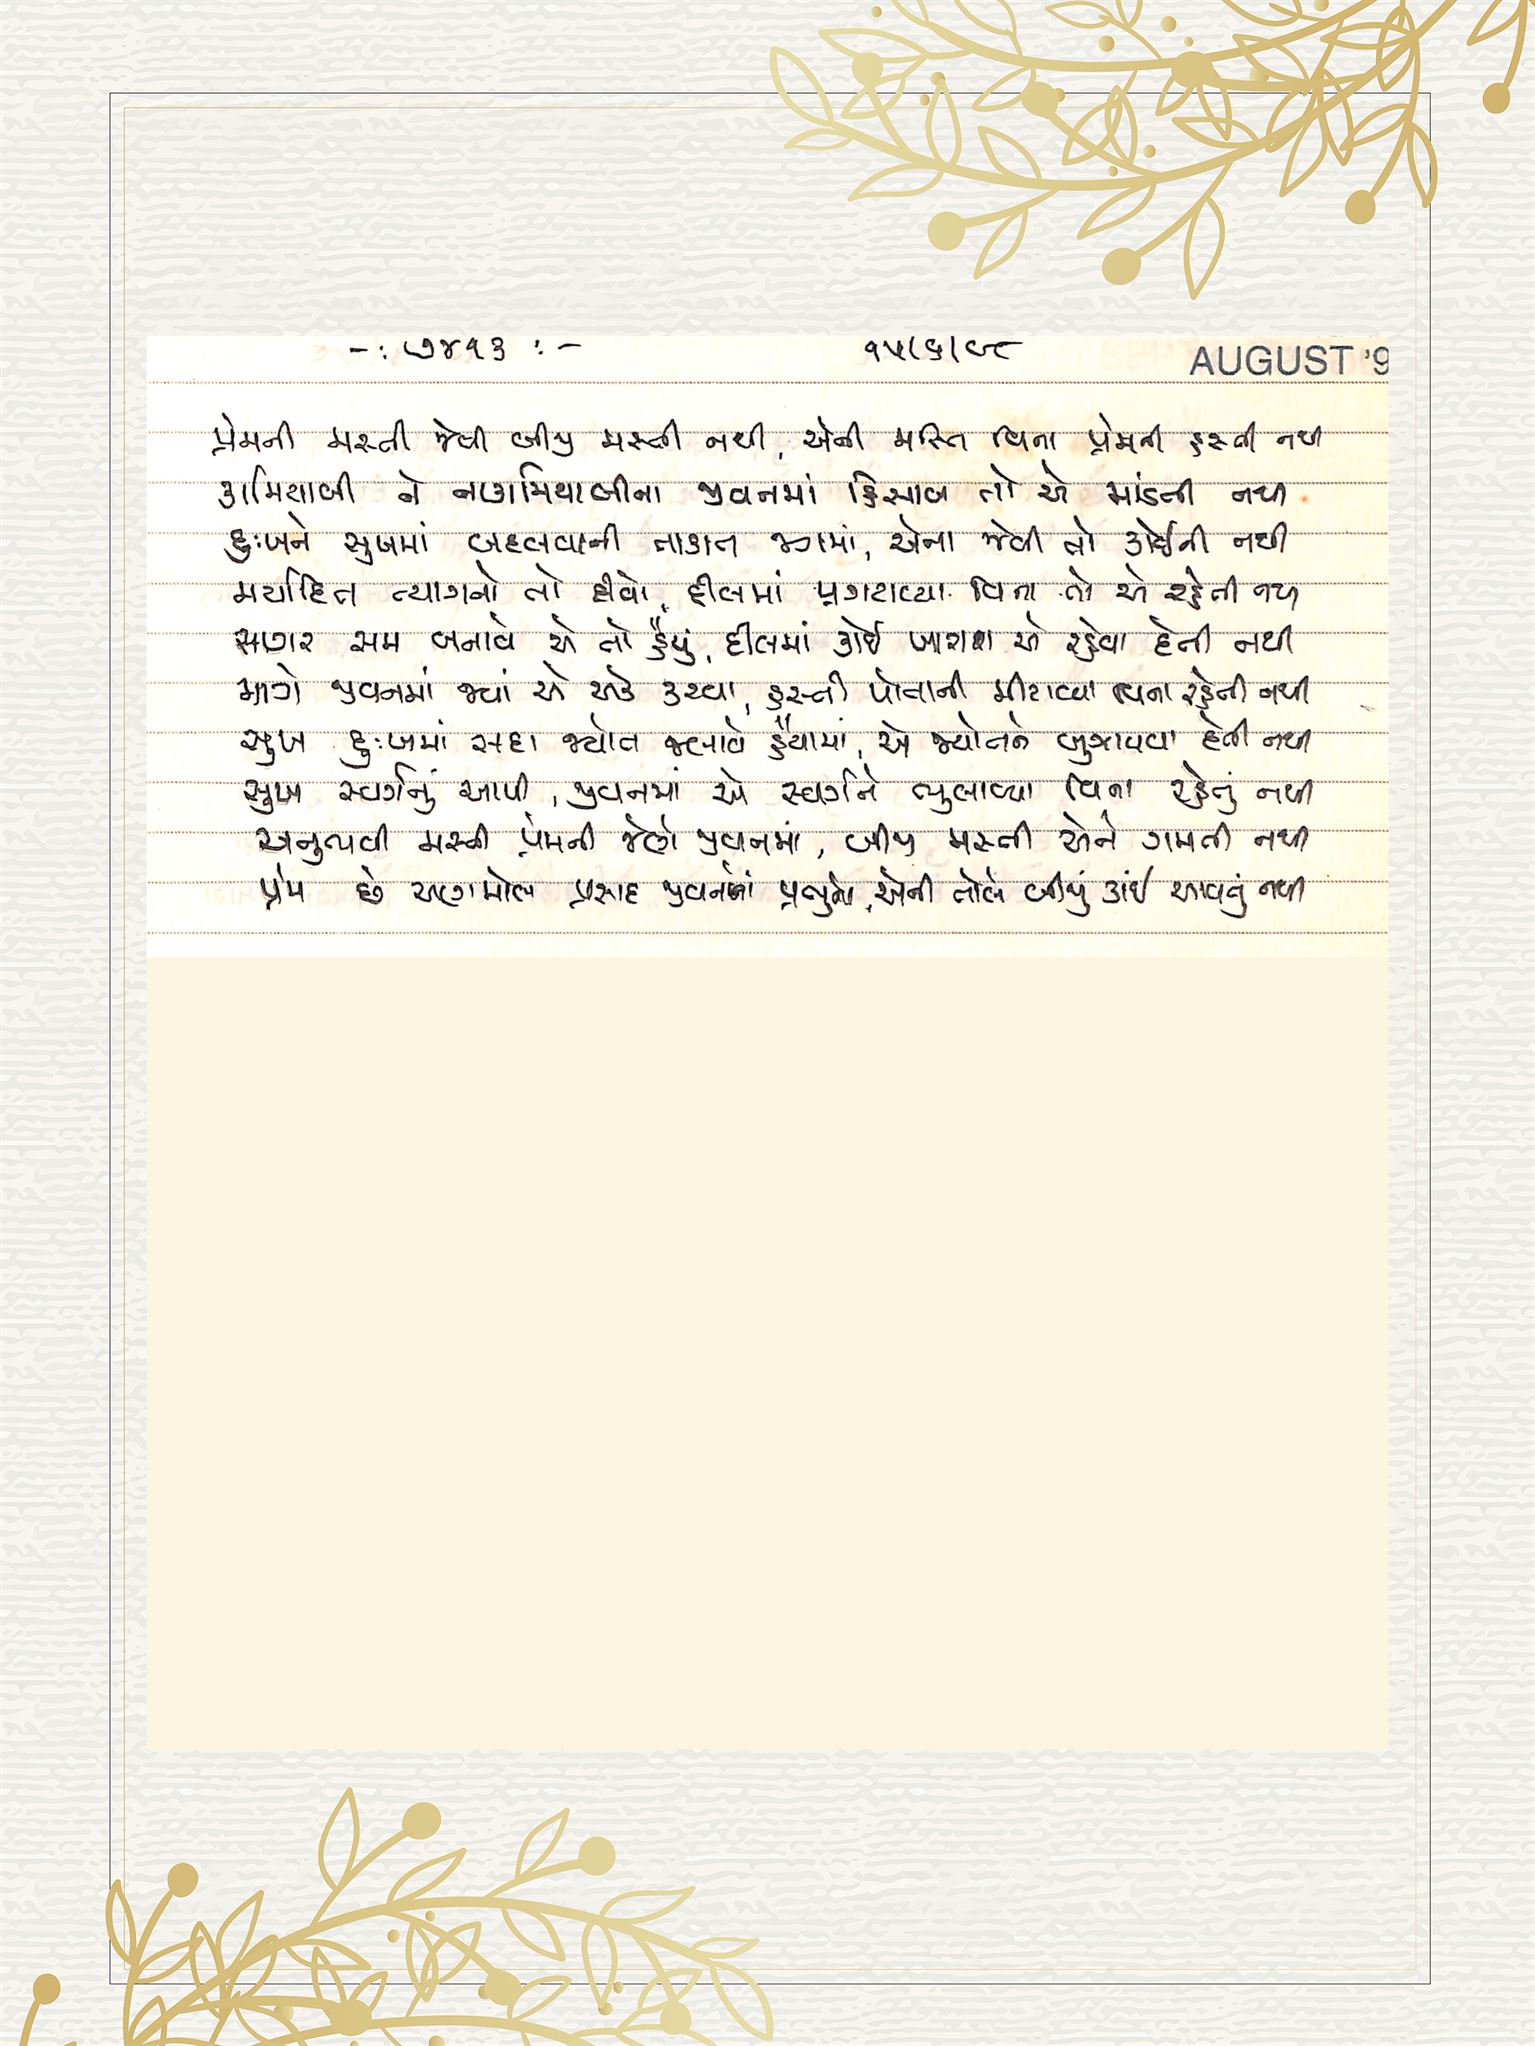 -: ૭૪૧૩ :- ૧૫/૬/૯૮ AUGUST '9
પ્રેમની મસ્તી જેવી બીજી મસ્તી નથી, એની મસ્તિ વિના પ્રેમની હસ્તી નથી
કામિયાબી ને નાકામિયાબીના જીવનમાં હિસાબ તો એ માંડતી નથી
દુઃખને સુખમાં બદલવાની તાકાત જગમાં, એના જેવી તો કોઈની નથી
મર્યાદિત ત્યાગનો તો દીવો, દીલમાં પ્રગટાવ્યા વિના તો એ રહેતી નથી
સાગર સમ બનાવે એ તો હૈયું, દીલમાં કોઈ ખારાશ એ રહેવા દેતી નથી
માગે જીવનમાં જ્યાં એ એક કરવા, હસ્તી પોતાની મીટાવ્યા વિના રહેતી નથી
સુખ દુઃખમાં સદા જ્યોત જલાવે હૈયામાં, એ જ્યોતને બુઝાવવા દેતી નથી
સુખ સ્વર્ગનું આપી, જીવનમાં એ સ્વર્ગને ભુલાવ્યા વિના રહેતું નથી
અનુભવી મસ્તી પ્રેમની જેણે જીવનમાં, બીજી મસ્તી એને ગમતી નથી
પ્રેમ છે અણમોલ પ્રસાદ જીવનમાં પ્રભુનો, એની તોલે બીજું કાંઈ આવતું નથી